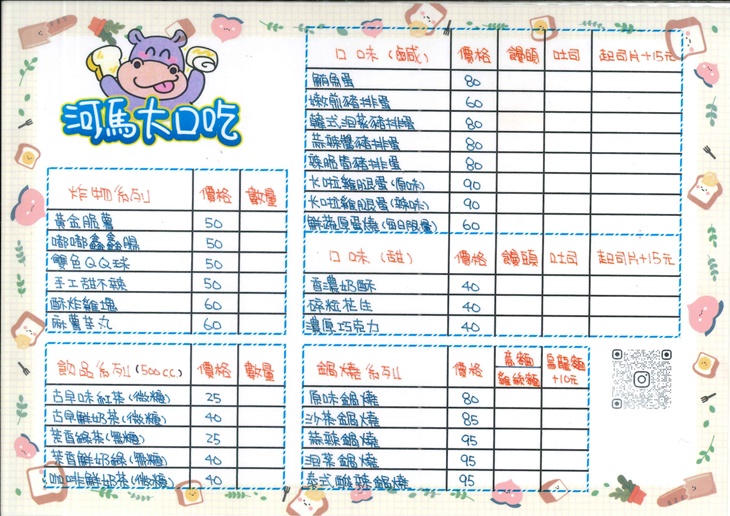 河馬大口吃
炸物系列 價格 數量
黃金脆薯 50
嘟嘟鑫鑫腸 50
雙色QQ球 50
手工甜不辣 50
酥炸雞塊 60
麻薯芋丸 60
飲品系列(500cc) 價格 數量
古早味紅茶(微糖) 25
古早鮮奶茶(微糖) 40
茶香綠茶(無糖) 25
茶香鮮奶綠(無糖) 40
咖啡鮮奶茶(微糖) 40
口味(鹹) 價格 饅頭 吐司 起司片+15元
鮪魚蛋 80
嫩煎豬排蛋 60
韓式泡菜豬排蛋 80
蒜辣醬豬排蛋 80
辣脆醬豬排蛋 80
卡啦雞腿蛋(原味) 90
卡啦雞腿蛋(辣味) 90
鮮蔬原蛋燒(每日限量) 60
口味(甜) 價格 饅頭 吐司 起司片+15元
香濃奶酥 40
碎粒花生 40
濃厚巧克力 40
鍋燒系列 價格 意麵 雞絲麵 烏龍麵+10元
原味鍋燒 80
沙茶鍋燒 85
蒜辣鍋燒 95
泡菜鍋燒 95
泰式酸辣鍋燒 95